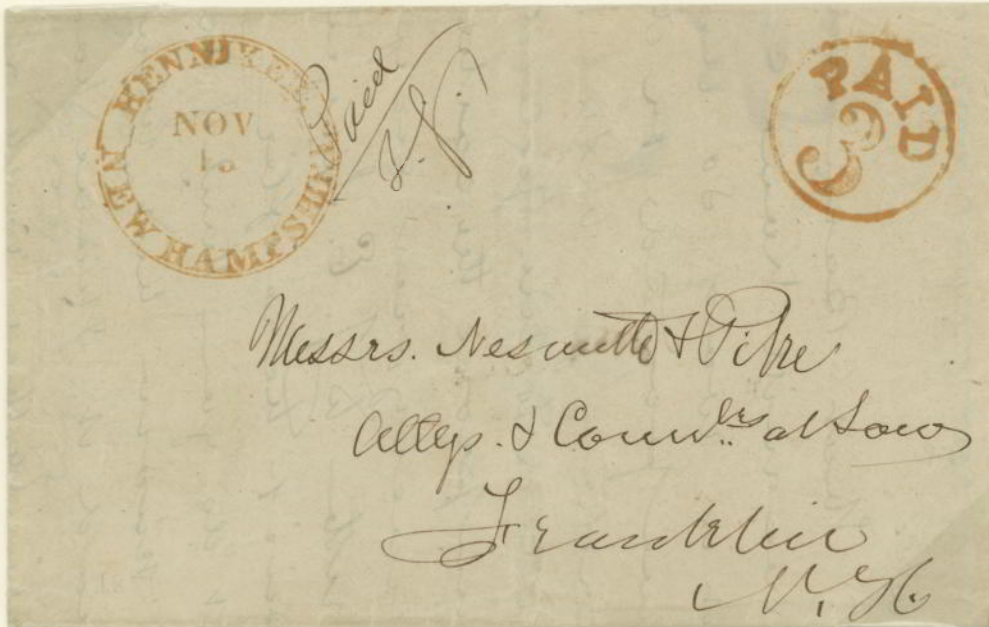 HENNIKER
NEW HAMPSHIRE
NOV
15
Paid
PAID
3
Messrs. Nesmith & Pike
Attys. & Couns'lrs at Law
Franklin
N. H.